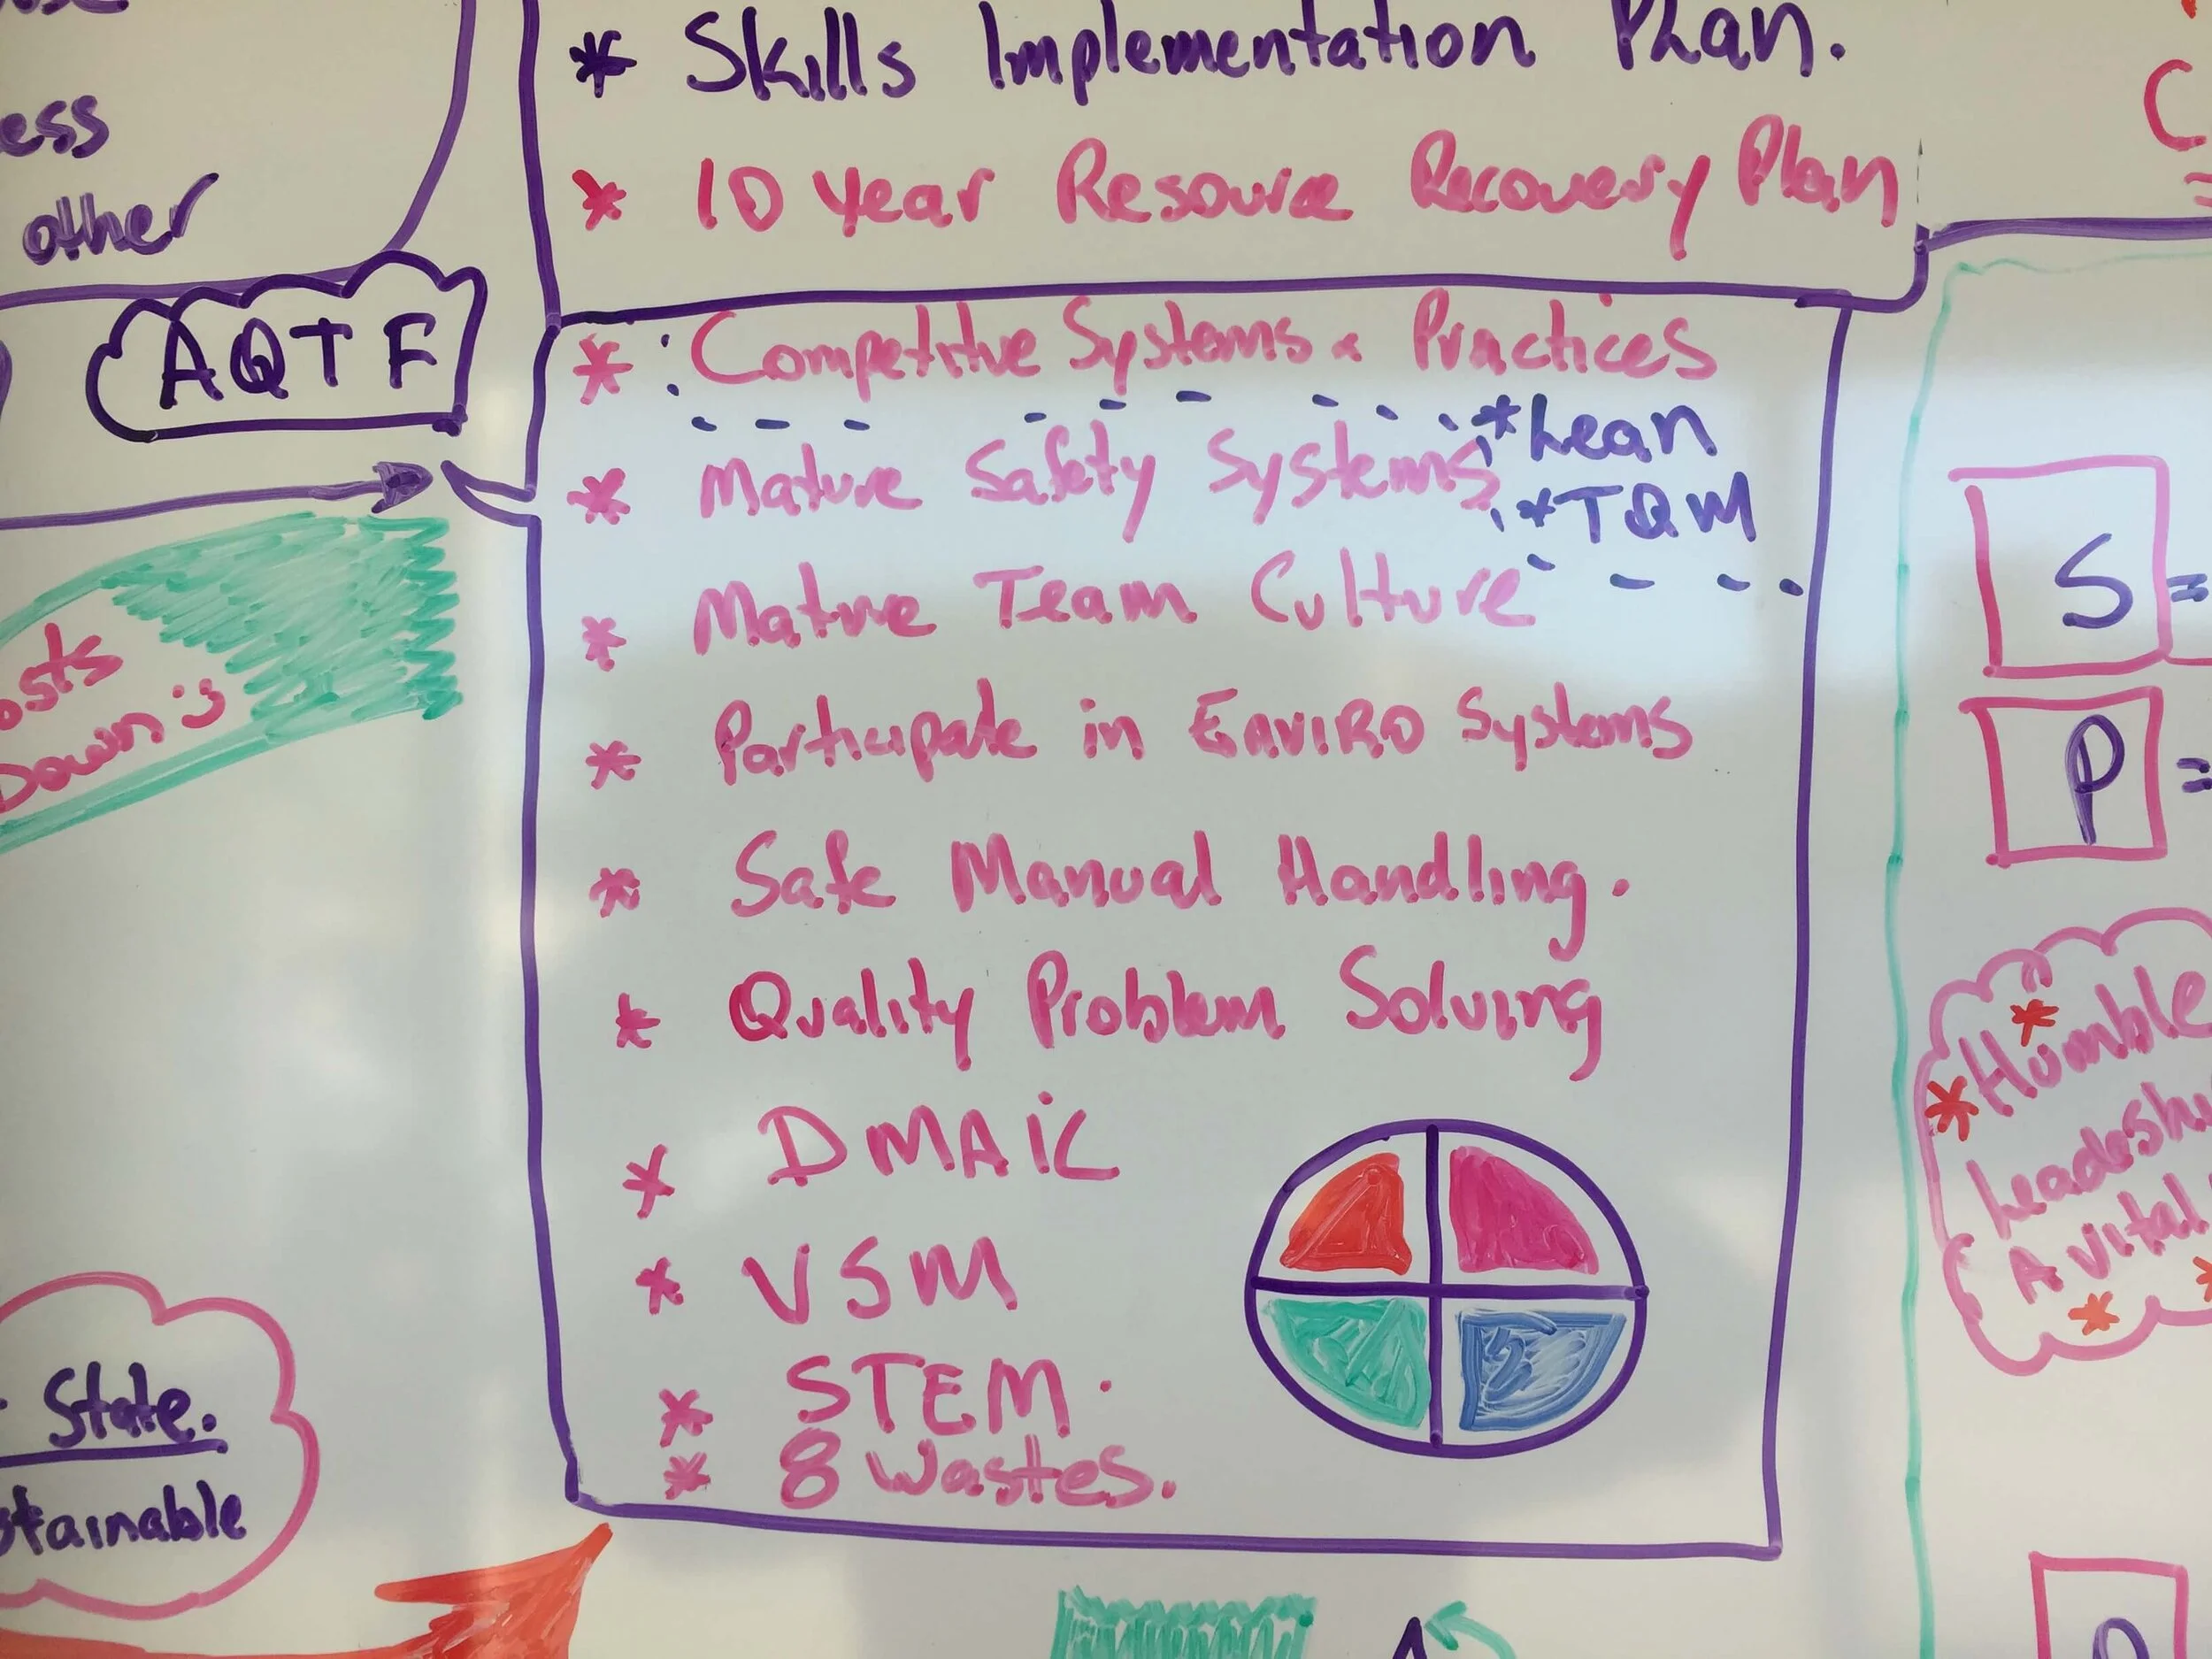 * Skills Implementation Plan.
* 10 year Resource Recovery Plan
ess
other
AQTF
* Competitive Systems & Practices
* Lean
* TQM
* Mature Safety Systems
* Mature Team Culture
* Participate in ENVIRO Systems
* Safe Manual Handling.
* Quality Problem Solving
* DMAiC
* VSM
* STEM.
* 8 Wastes.
osts
Down :)
State.
stainable
S =
P =
* Humble
* Leadeshi
A vital